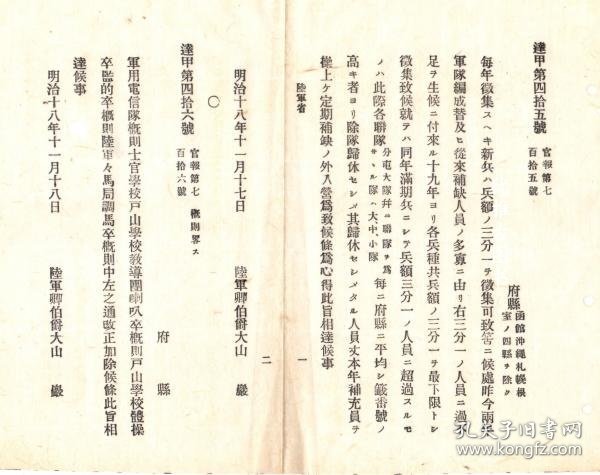 達甲第四拾五號 官報第七百拾五號
府縣 函館沖繩札幌根室ノ四縣ヲ除ク
每年徵集スヘキ新兵ハ兵額ノ三分一ヲ徵集可致筈ニ候處昨今兩年
軍隊編成替及ヒ從來補缺人員ノ多寡ニ由リ右三分一ノ人員ニ過不
足ヲ生候ニ付來ル十九年ヨリ各兵種共兵額ノ三分一ヲ最下限トシ
徵集致候就テハ同年滿期兵ニシテ兵額三分一ノ人員ニ超過スルモ
ノハ此際各聯隊 分屯大隊幷ニ聯隊ヲ爲サヽル隊ハ大中、小隊 每ニ府縣ニ平均シ籤番號ノ
高キ者ヨリ除隊歸休セシメ其歸休セシメタル人員丈本年補充員ヲ
繰上ケ定期補缺ノ外入營爲致候條爲心得此旨相達候事
陸軍省
一
明治十八年十一月十七日 陸軍卿伯爵大山 巖
○
達甲第四拾六號 官報第七百拾六號 概則畧ス
府縣
軍用電信隊概則士官學校戶山學校敎導團喇叭卒概則戶山學校體操
卒監的卒概則陸軍々馬局調馬卒概則中左之通改正加除候條此旨相
達候事
明治十八年十一月十八日 陸軍卿伯爵大山 巖
二
孔夫子旧书网
www.kongfz.com